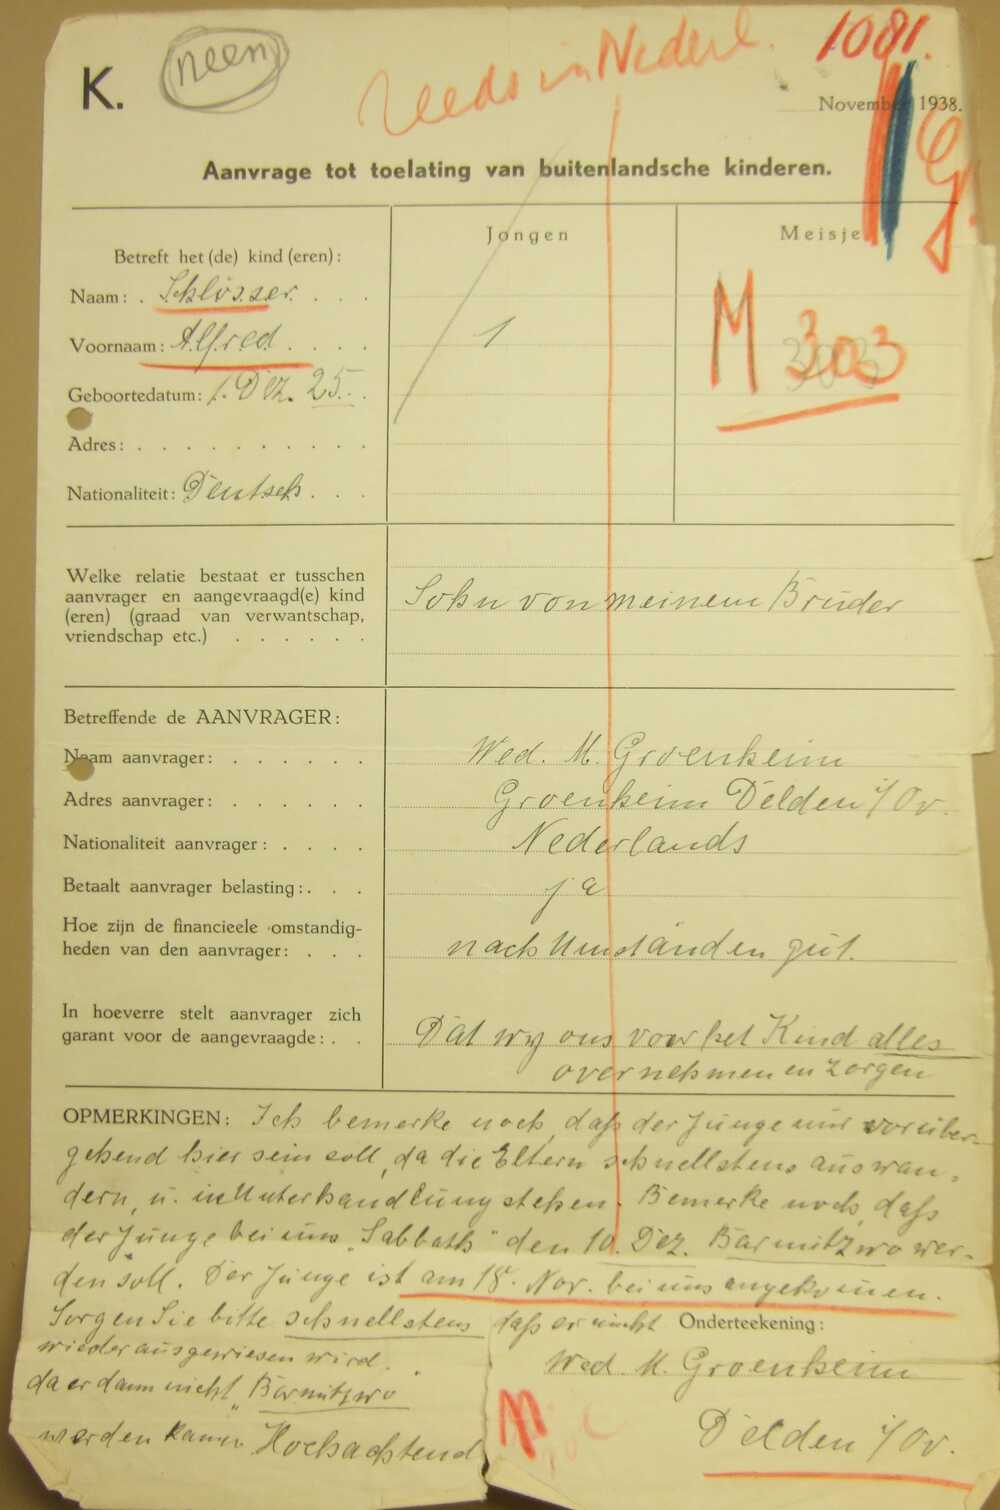 K.
neen
reeds in Nederl.
1081.
November 1938.
G.
Aanvrage tot toelating van buitenlandsche kinderen.
Jongen
Meisje
Betreft het (de) kind (eren) :
Naam : . Schlösser. . . .
Voornaam : Alfred . . . .
1
M 303
Geboortedatum : 1. Dez. 25. . .
Adres : . . . . . . . . . .
Nationaliteit : Deutsch . . .
Welke relatie bestaat er tusschen
aanvrager en aangevraagd(e) kind
(eren) (graad van verwantschap,
vriendschap etc.) . . . . . .
Sohn von meinem Bruder
Betreffende de AANVRAGER :
Naam aanvrager : . . . . . . Wed. M. Groenheim
Adres aanvrager : . . . . . . Groenheim Delden i/Ov.
Nationaliteit aanvrager : . . . . Nederlands
Betaalt aanvrager belasting : . . . ja
Hoe zijn de financieele omstandig-
heden van den aanvrager : . . . nach Umständen gut.
In hoeverre stelt aanvrager zich
garant voor de aangevraagde : . . Dat wy ons voor het Kind alles
overnehmen en zorgen
OPMERKINGEN : Ich bemerke noch, daß der Junge nur vorüber-
gehend hier sein soll, da die Eltern schnellstens auswan-
dern, u. in Unterhandlung stehen. Bemerke noch, daß
der Junge bei uns „Sabbath" den 10. Dez. Barmitzwo wer-
den soll. Der Junge ist am 18. Nov. bei uns angekomen.
Sorgen Sie bitte schnellstens daß er nicht
Onderteekening :
wieder ausgewiesen wird.
Wed. M. Groenheim
da er dann nicht „Barmitzwo"
werden kann. Hochachtend
Delden i/Ov.
M